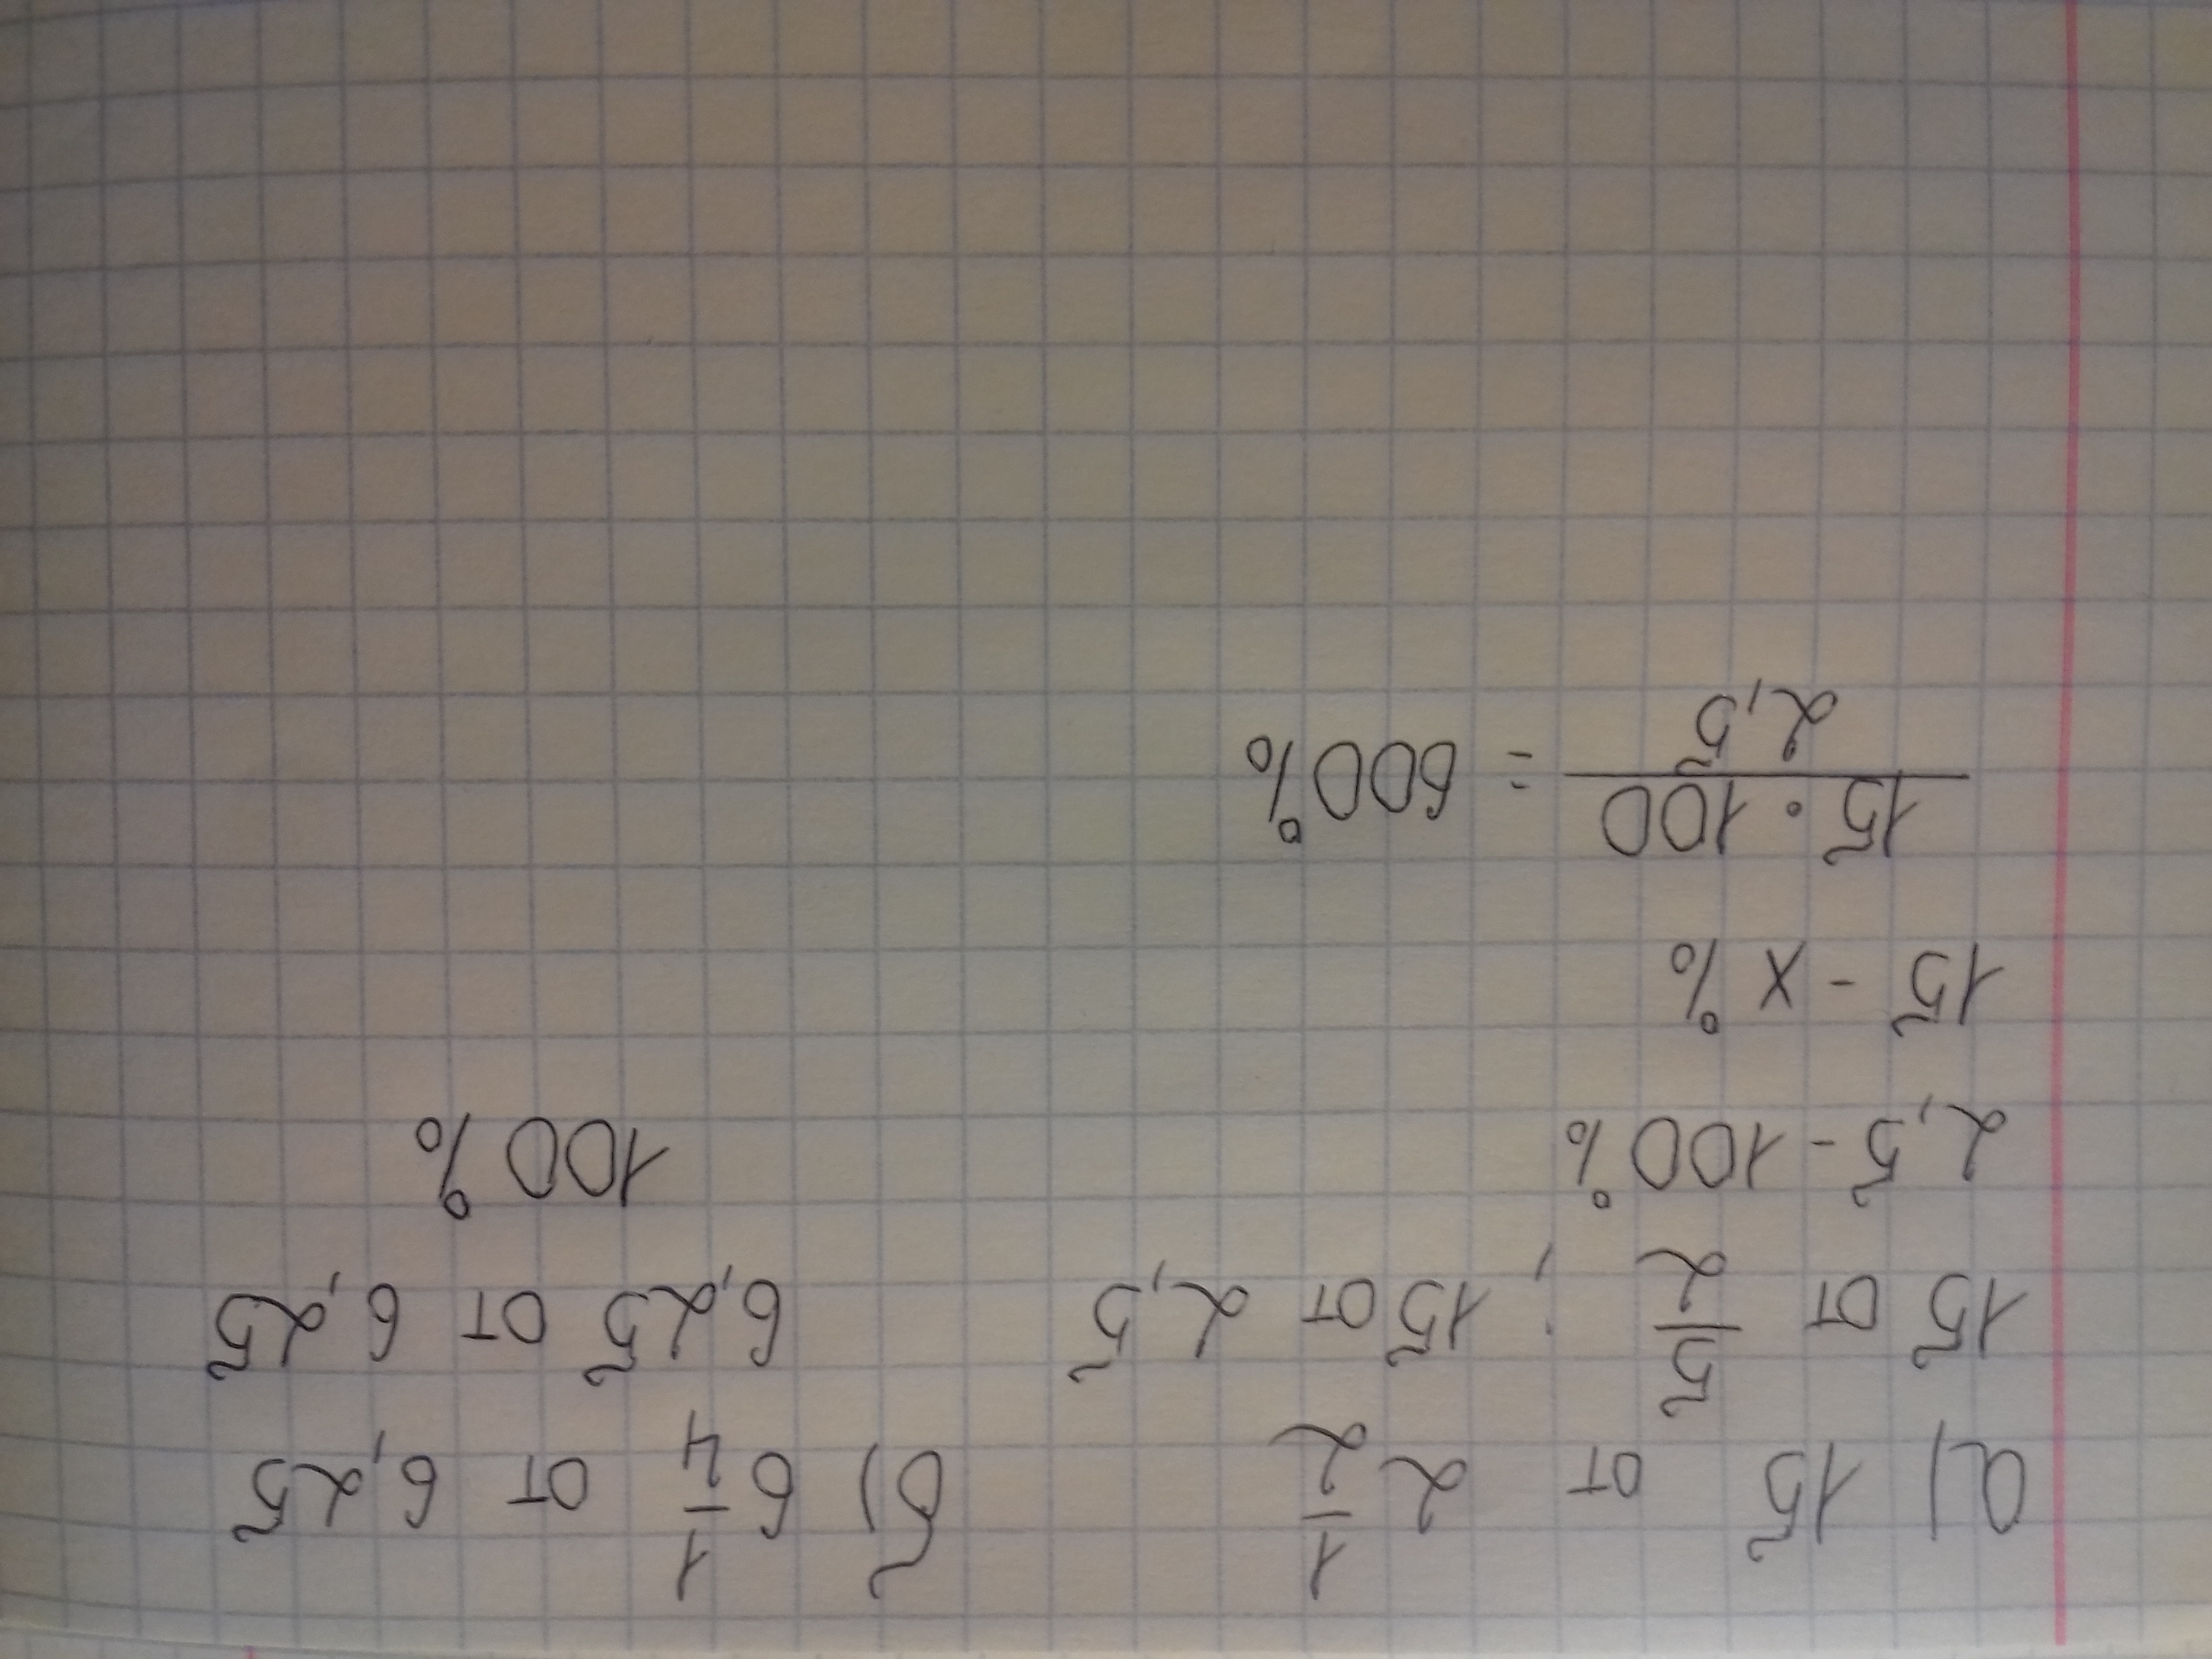 а) 15 от 2 1/2
15 от 5/2 ; 15 от 2,5
2,5 - 100%
15 - x %
15 · 100 / 2,5 = 600%
б) 6 1/4 от 6,25
6,25 от 6,25
100%